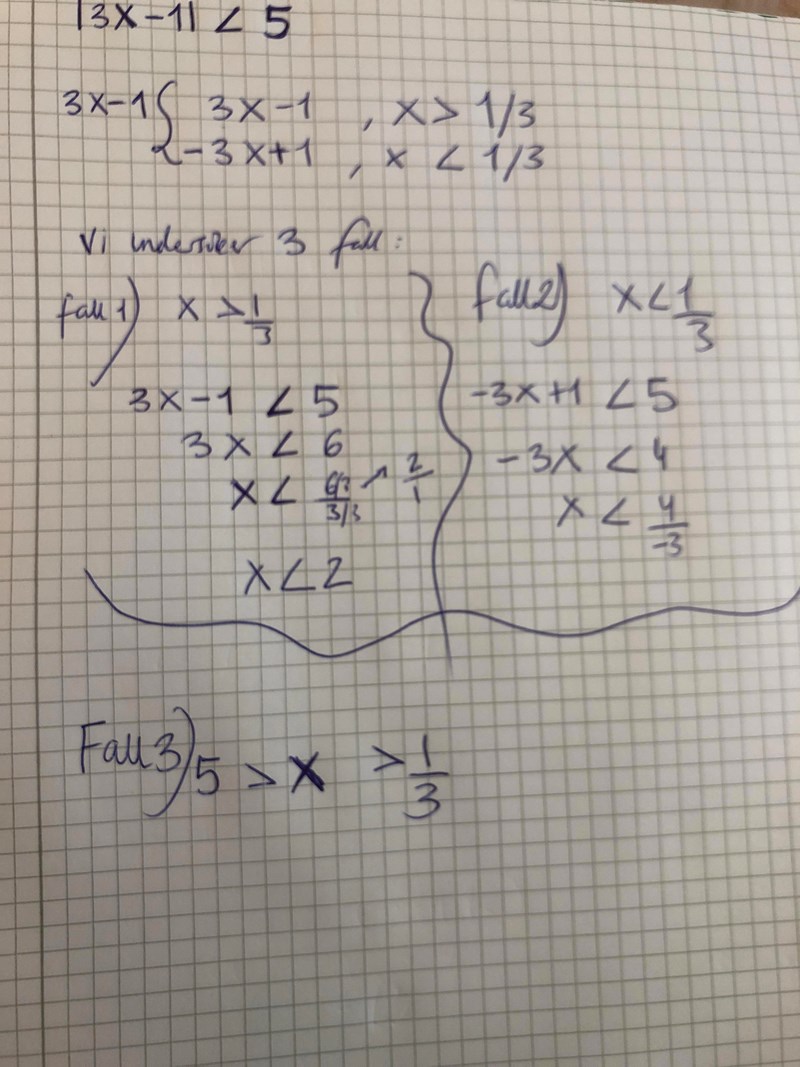 |3x-1| < 5
3x-1{ 3x-1 , x > 1/3
-3x+1 , x < 1/3
Vi undersöker 3 fall:
fall 1) x > 1/3
3x-1 < 5
3x < 6
x < 6/3 / 3/3 ↗ 2/1
x < 2
fall 2) x < 1/3
-3x+1 < 5
-3x < 4
x < 4/-3
Fall 3) 5 > x > 1/3